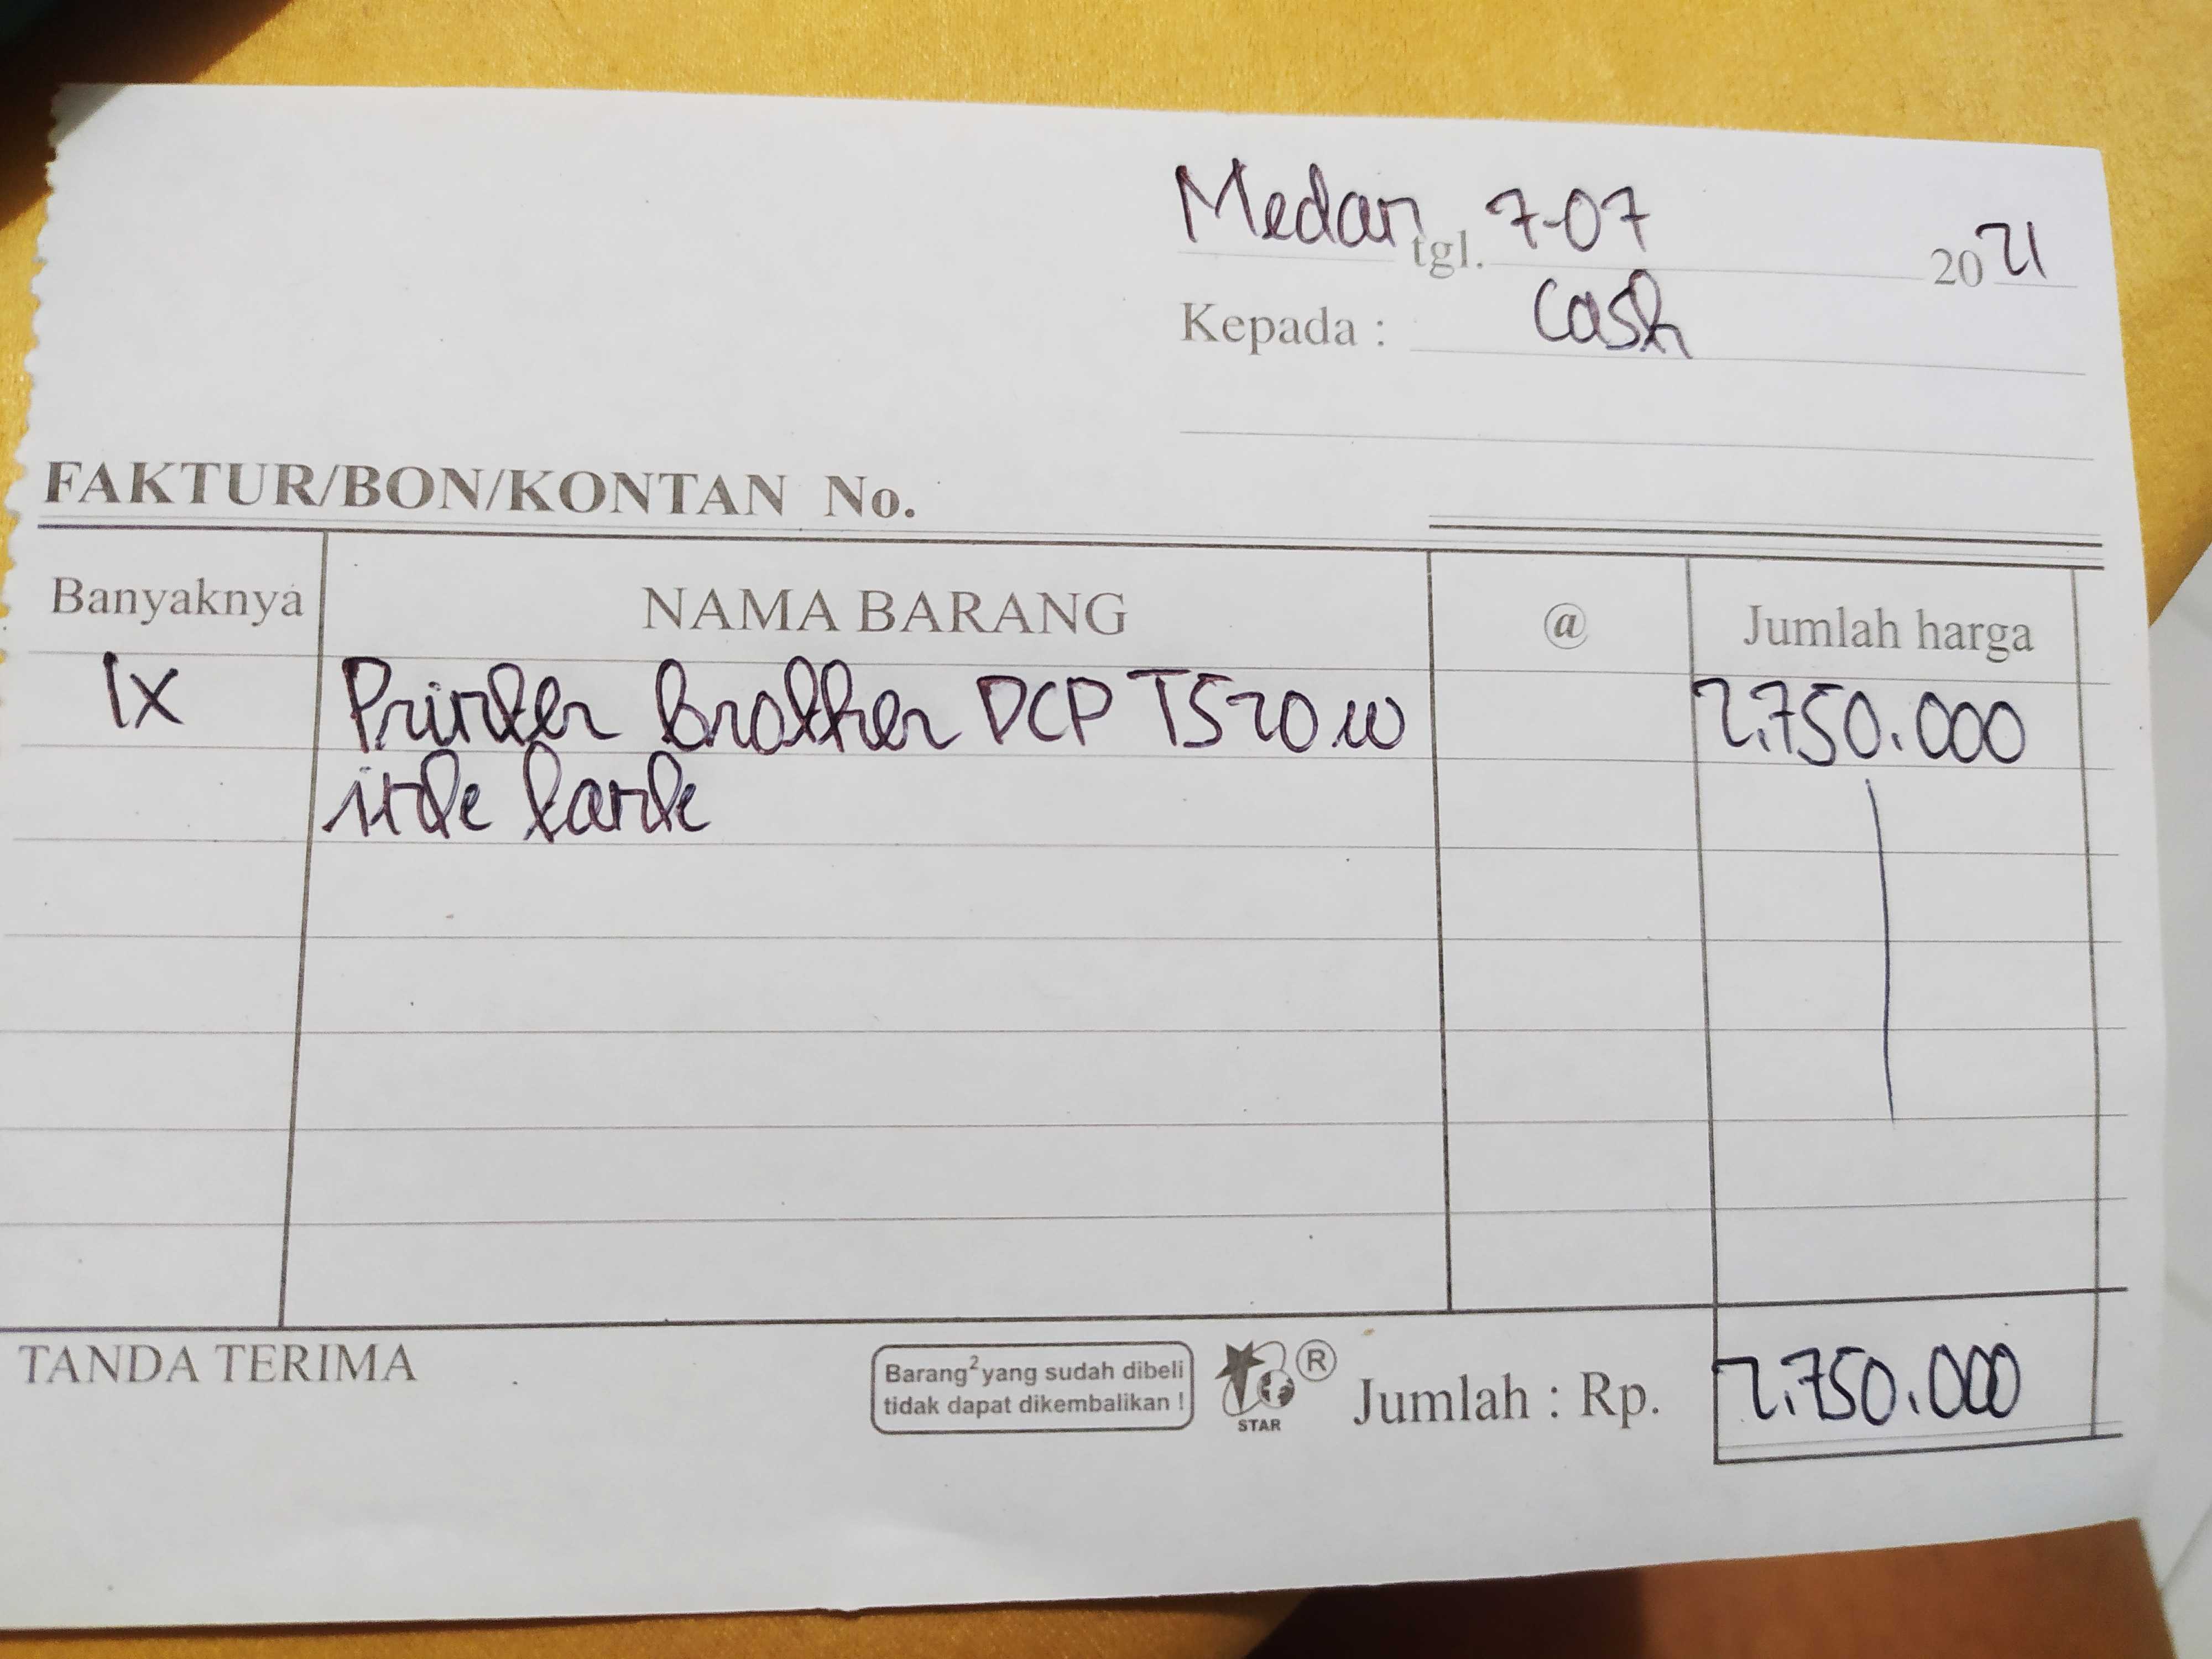 Medan tgl. 7-07 2021
Kepada : Cash
FAKTUR/BON/KONTAN No.
Banyaknya NAMA BARANG @ Jumlah harga
1x Printer Brother DCP T520w 2.750.000
ink tank
TANDA TERIMA
Barang² yang sudah dibeli
tidak dapat dikembalikan !
STAR ®
Jumlah : Rp. 2.750.000